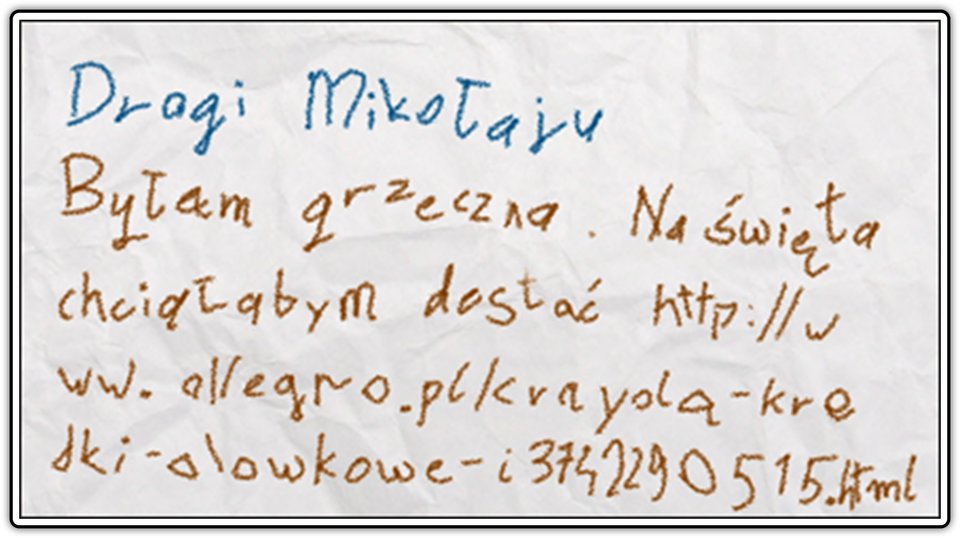 Drogi Mikołaju
Byłam grzeczna. Na święta
chciąłabym dostać http://w
ww.allegro.pl/crayolą-kre
dki-olowkowe-i3742290515.html